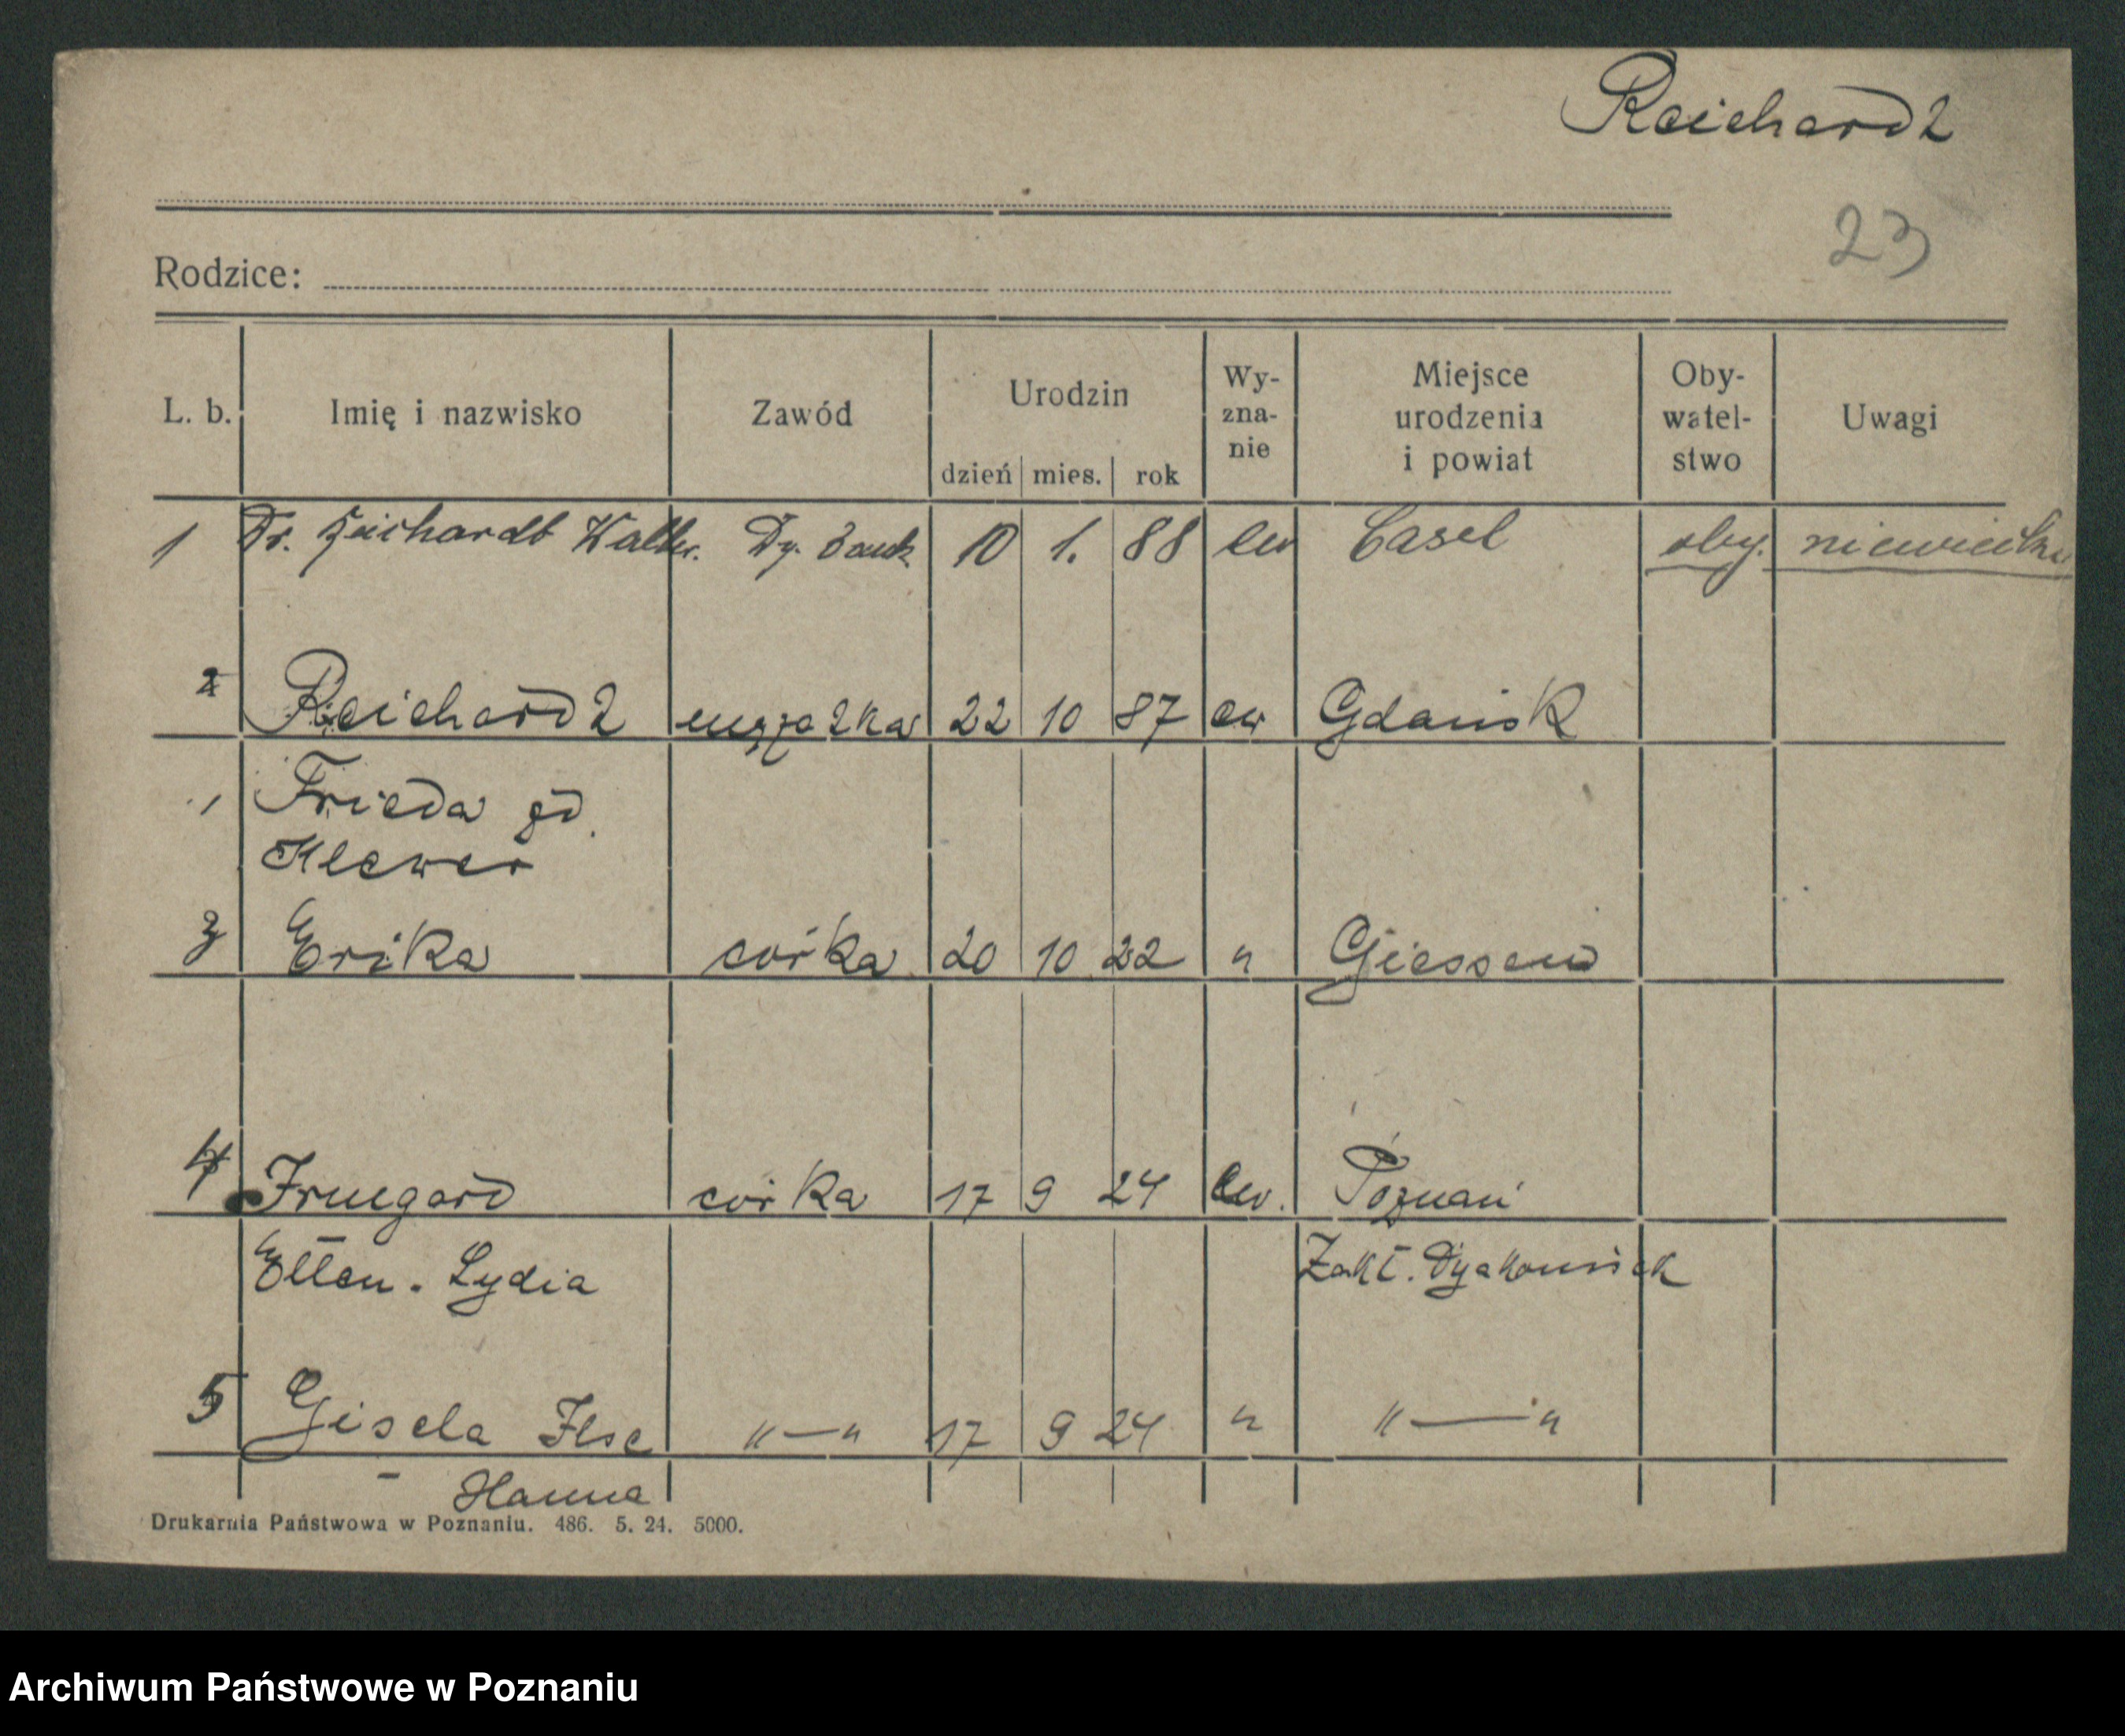 Reichardt
23
Rodzice:
L. b. Imię i nazwisko Zawód Urodzin dzień mies. rok Wy- zna- nie Miejsce urodzenia i powiat Oby- watel- stwo Uwagi
1 Dr. Reichardt Walter. Dy. Bank 10 1. 88 ew Casel oby. niemiecki
2 Reichardt mężatka 22 10 87 ew Gdańsk
Frieda
Klewer
3 Erika córka 20 10 22 " Giessen
4 Irmgard córka 17 9 24 ew. Poznań
Ellen - Lydia Zakł. Dyakonisek
5 Gisela Ilse " — " 17 9 24 " " — "
- Hanna
Drukarnia Państwowa w Poznaniu. 486. 5. 24. 5000.
Archiwum Państwowe w Poznaniu